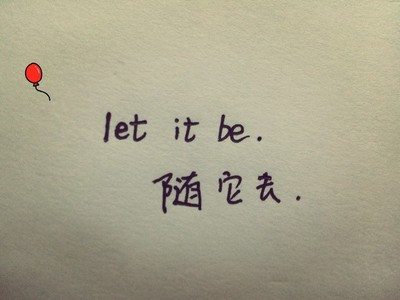 let it be.
随它去.